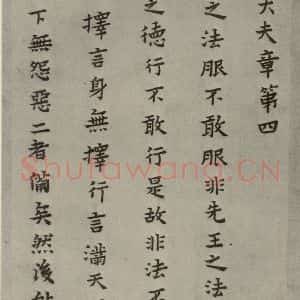 大夫章第四
之法服不敢服非先王之法
之德行不敢行是故非法不
擇言身無擇行言滿天
下無怨惡二者備矣然後能
Shufawang.CN